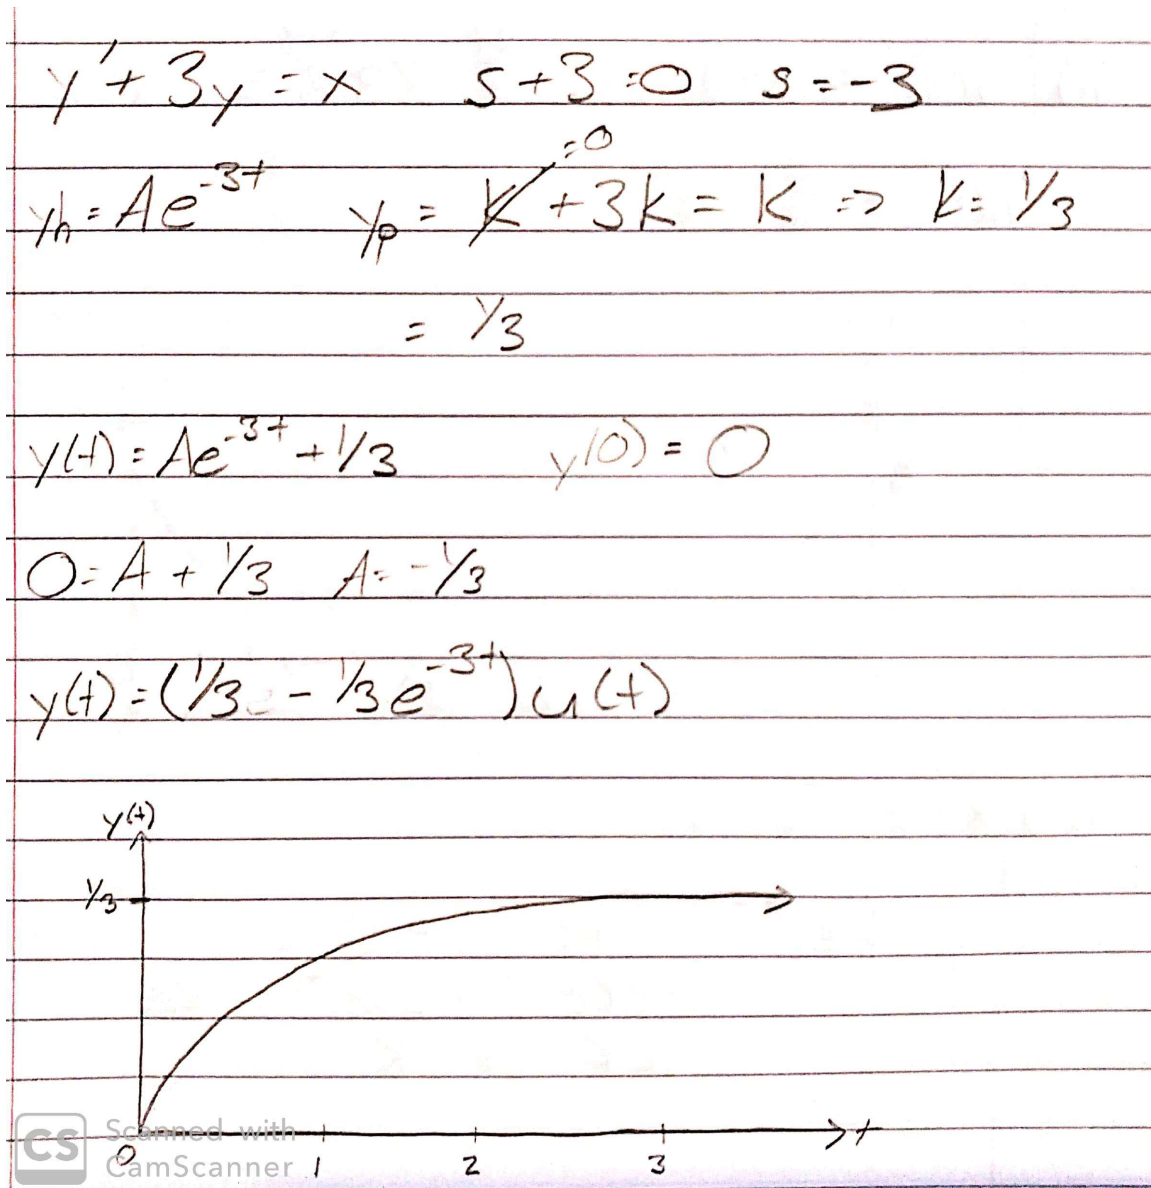 y' + 3y = x s + 3 = 0 s = -3
=0
yh = Ae^-3t yp = K + 3k = K => k = 1/3
= 1/3
y(t) = Ae^-3t + 1/3 y(0) = 0
0 = A + 1/3 A = -1/3
y(t) = (1/3 - 1/3e^-3t)u(t)
y(t)
1/3
t
0 1 2 3
CS Scanned with
CamScanner